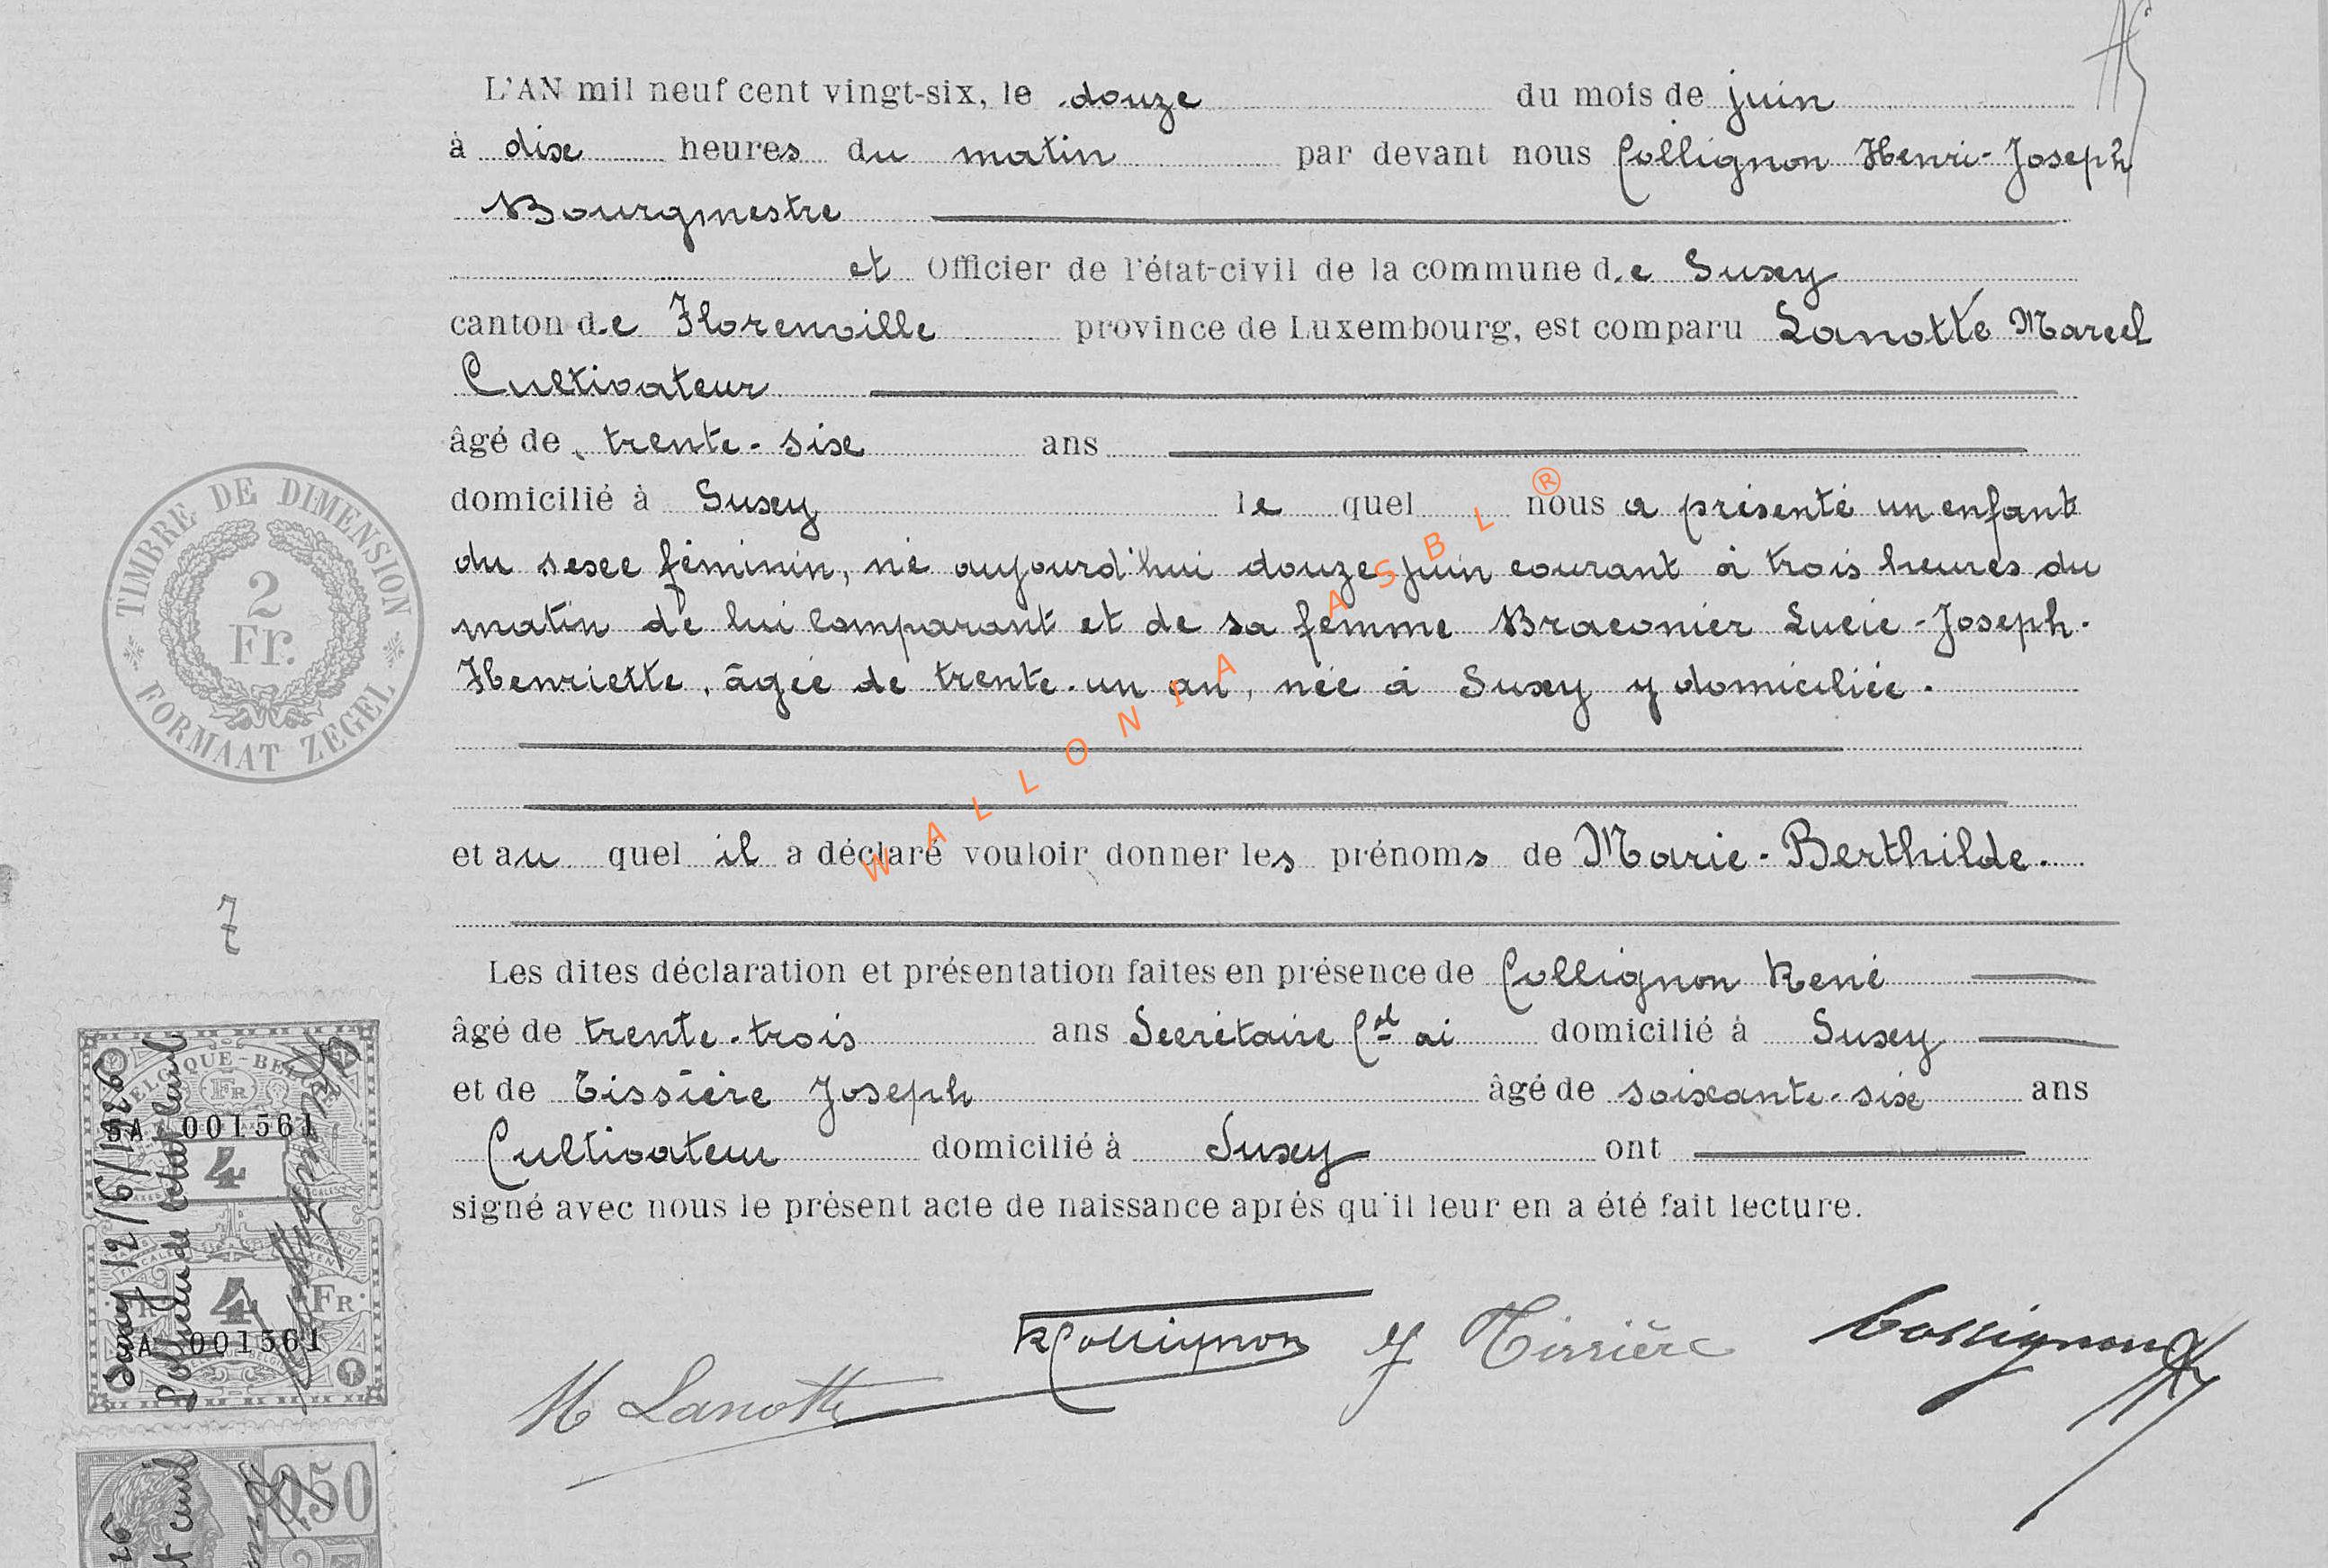 L'AN mil neuf cent vingt-six, le douze du mois de juin
à dix heures du matin par devant nous Collignon Henri-Joseph
Bourgmestre
et Officier de l'état-civil de la commune de Suxy
canton de Florenville province de Luxembourg, est comparu Lanotte Marcel
Cultivateur
âgé de trente-six ans
domicilié à Suxy le quel nous a présenté un enfant
du sexe féminin, né aujourd'hui douze juin courant à trois heures du
matin de lui comparant et de sa femme Braconier Lucie-Joseph-
Henriette, âgée de trente-un an, née à Suxy y domiciliée.
et au quel il a déclaré vouloir donner les prénoms de Marie-Berthilde.
Les dites déclaration et présentation faites en présence de Collignon René
âgé de trente-trois ans Secrétaire Cal ai domicilié à Suxy
et de Tissière Joseph âgé de soixante-six ans
Cultivateur domicilié à Suxy ont
signé avec nous le présent acte de naissance après qu'il leur en a été fait lecture.
M Lanotte RCollignon J Tissière Collignon HJ
TIMBRE DE DIMENSION
2
Fr.
FORMAAT ZEGEL
7
BELGIQUE-BELGIË
FR
SA 001561
4
4
FR
SA 001561
Suxy 12/6/1926
L'officier de l'état civil
Collignon HJ
0.50
26
t civil
WALLONIA ASBL ®